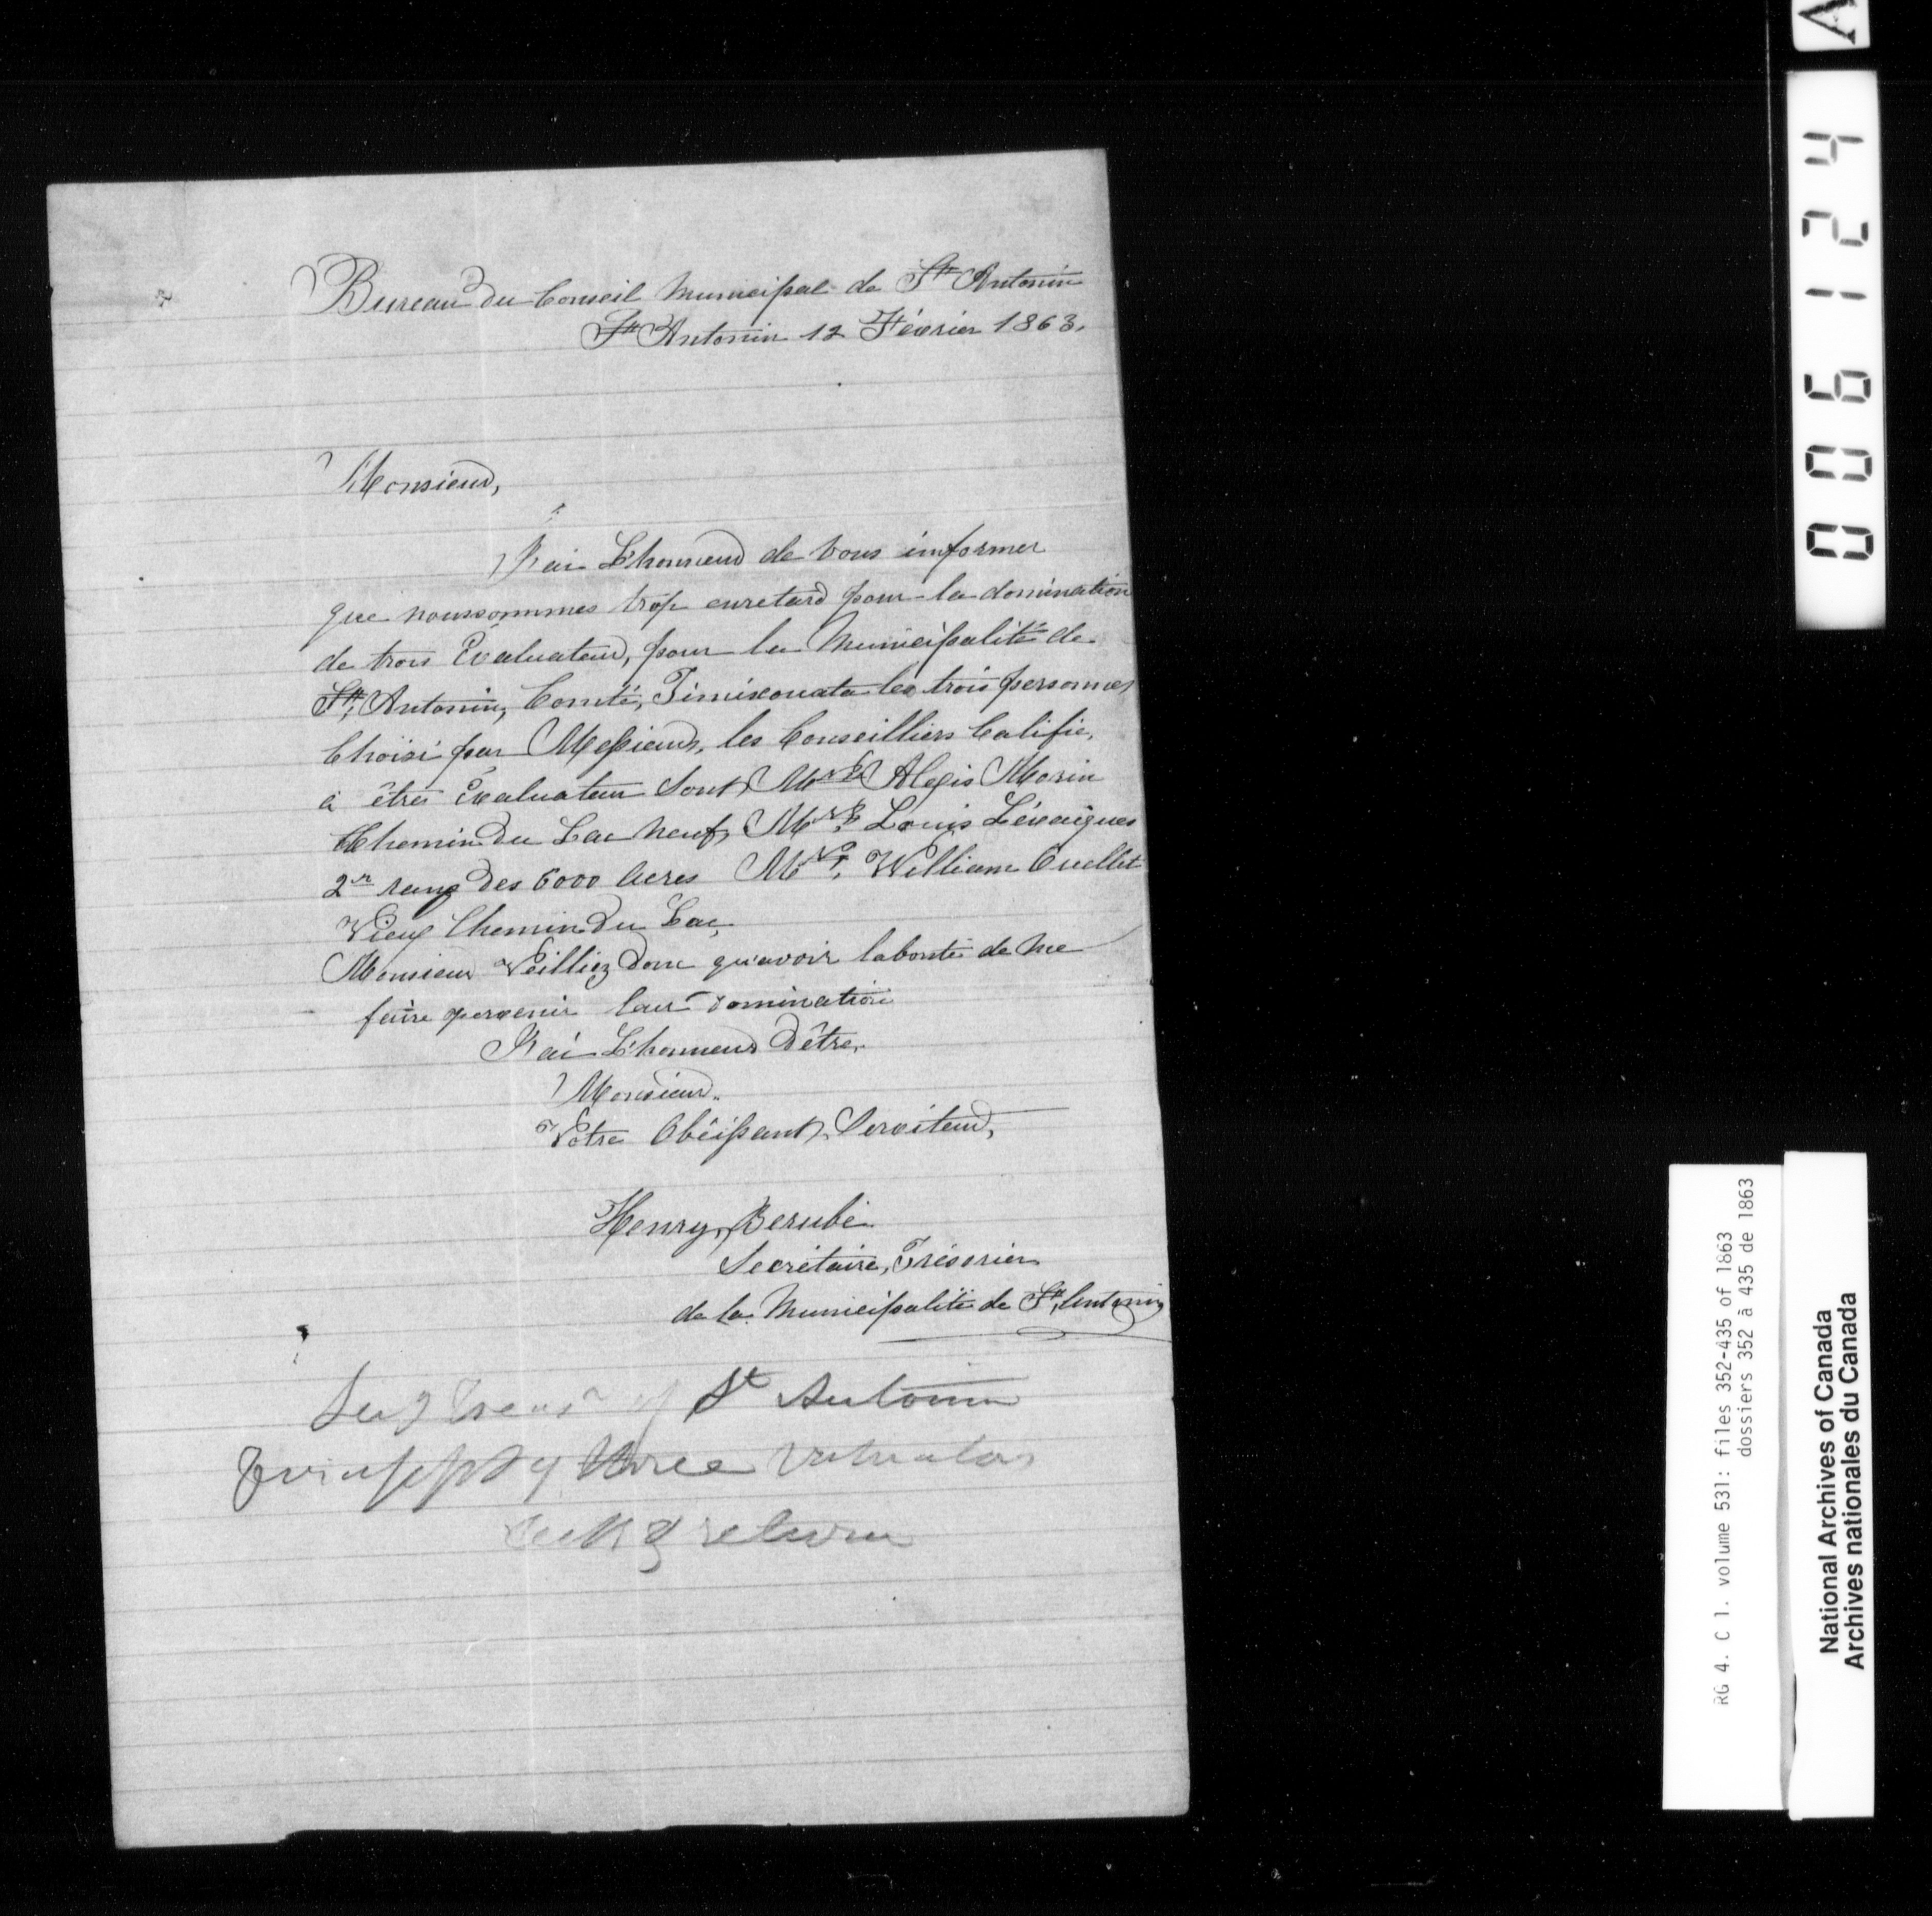 Bureau du Conseil Municipal de St Antonin
St Antonin 12 Février 1863.
Monsieur,
J'ai L'honneur de vous imformer
que noussommes trop enretard pour la domination
de trois Évaluateur, pour la Municipalité de
St, Antonin, Comté, Timixouata les trois personnes
Choisi par Messieurs, les Conseilliers Califie,
à être Évaluateur Sont, Alexis Morin
Chemin du Lac neuf, Louis Lévaigues
2er rang des 6000 Acres William Ouellet
Vieux Chemin du Lac,
Monsieur Veilliez donc qu'avoir labonté de me
faire parvenir leur domination
J'ai L'honneur D'être,
Monsieur.
Votre Obéissant, Serviteur,
Henry, Berubé
Secrétaire, Trésorier
de la Municipalité de St, Antonin
St Antonin
three valuators
return
0 0 6 1 2 4
A
RG 4. C 1. volume 531: files 352-435 of 1863
dossiers 352 à 435 de 1863
National Archives of Canada
Archives nationales du Canada